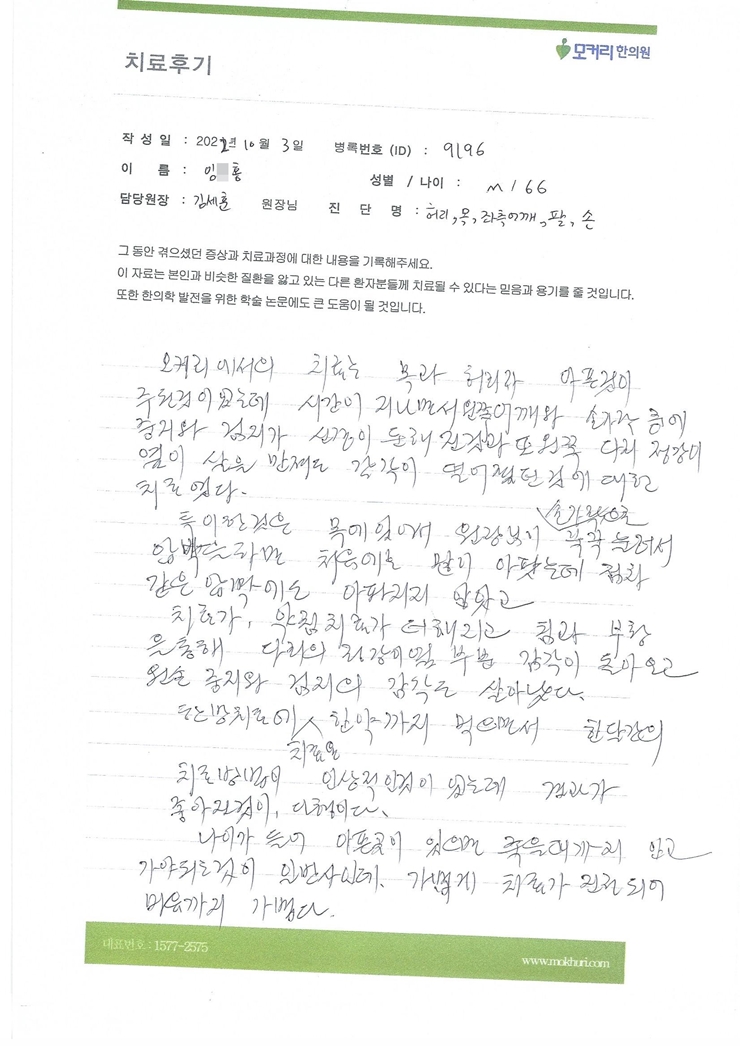 모커리한의원
치료후기
작 성 일 : 2022년 10월 3일 병록번호 (ID) : 9196
이 름 : 임 홍 성별 / 나이 : M / 66
담당원장 : 김세훈 원장님 진 단 명 : 허리, 목, 좌측어깨, 팔, 손
그 동안 겪으셨던 증상과 치료과정에 대한 내용을 기록해주세요.
이 자료는 본인과 비슷한 질환을 앓고 있는 다른 환자분들께 치료될 수 있다는 믿음과 용기를 줄 것입니다.
또한 한의학 발전을 위한 학술 논문에도 큰 도움이 될 것입니다.
모커리에서의 치료는 목과 허리가 아픈것이
주된것이었는데 시간이 지나면서 왼쪽어깨와 손가락 중에
중지와 검지가 신경이 둔해진것과 또 왼쪽 다리 정강이
옆이 살을 만져도 감각이 떨어졌던 것에 대한
치료였다.
특이한것은 목에 있어서 원장님이 손가락으로 꾹꾹 눌러서
압박을 하면 처음에는 많이 아팠는데 점차
같은 압박에도 아파지지 않았고
치료가, 약침치료가 더해지고 침과 부항
을 통해 다리의 정강이옆 부분 감각이 돌아오고
왼손 중지와 검지의 감각도 살아났다.
한방치료에 한약까지 먹으면서 한달간의
치료로
치료방법이 인상적인것이 있는데 결과가
좋아진것이, 다행이다.
나이가 들어 아픈곳이 있으면 죽을때까지 안고
가야되는것이 일반사인데. 가볍게 치료가 진전되어
마음까지 가볍다.
대표번호 : 1577-2575
www.mokhuri.com